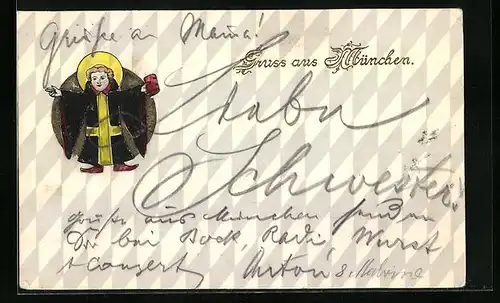 Grüße an Mama!
Gruss aus München.
Liebe
Schwester!
Grüße aus München senden
Dir bei Bock, Radi, Wurst
+ Conzert Anton &